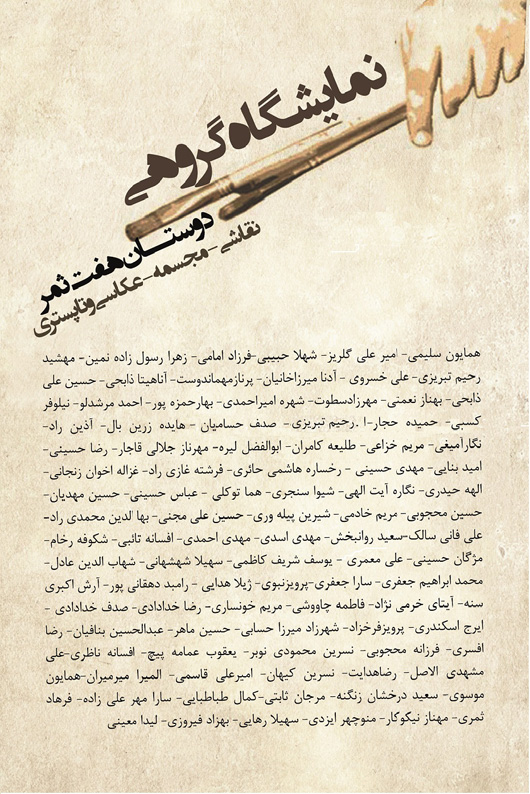 نمایشگاه گروهی
دوستان هفت ثمر
نقاشی-مجسمه-عکاسی و تاپستری
همایون سلیمی- امیر علی گلریز- شهلا حبیبی-فرزاد امامی- زهرا رسول زاده نمین- مهشید
رحیم تبریزی- علی خسروی - آدنا میرزاخانیان- پرنازمهماندوست- آناهیتا ذابحی- حسین علی
ذابحی- بهناز نعمتی- مهرزادسطوت- شهره امیراحمدی- بهارحمزه پور- احمد مرشدلو- نیلوفر
کسبی- حمیده حجار-ا .رحیم تبریزی- صدف حسامیان - هایده زرین بال- آذین راد-
نگارآمیغی- مریم خزاعی- طلیعه کامران- ابوالفضل لیره- مهرناز جلالی قاجار- رضا حسینی-
امید بنایی- مهدی حسینی - رخساره هاشمی حائری- فرشته غازی راد- غزاله اخوان زنجانی-
الهه حیدری- نگاره آیت الهی- شیوا سنجری- هما توکلی - عباس حسینی- حسین مهدیان-
حسین محجوبی- مریم خادمی- شیرین پیله وری- حسین علی مجنی- بها الدین محمدی راد-
علی فانی سالک-سعید روانبخش- مهدی اسدی- مهدی احمدی- افسانه تائبی- شکوفه رخام-
مژگان حسینی- علی معمری - یوسف شریف کاظمی- سهیلا شهشهانی- شهاب الدین عادل-
محمد ابراهیم جعفری- سارا جعفری-پرویزنبوی- ژیلا هدایی - رامبد دهقانی پور- آرش اکبری
سنه- آیتای خرمی نژاد- فاطمه چاووشی- مریم خونساری- رضا خدادادی- صدف خدادادی -
ایرج اسکندری- پرویزفرخزاد- شهرزاد میرزا حسابی- حسین ماهر- عبدالحسین بنافیان- رضا
افسری- فرزانه محجوبی- نسرین محمودی نوبر- یعقوب عمامه پیچ- افسانه ناظری-علی
مشهدی الاصل- رضاهدایت- نسرین کیهان- امیرعلی قاسمی- المیرا میرمیران-همایون
موسوی- سعید درخشان زنگنه- مرجان ثابتی-کمال طباطبایی- سارا مهر علی زاده- فرهاد
ثمری- مهناز نیکوکار- منوچهر ایزدی- سهیلا رهایی- بهزاد فیروزی- لیدا معینی